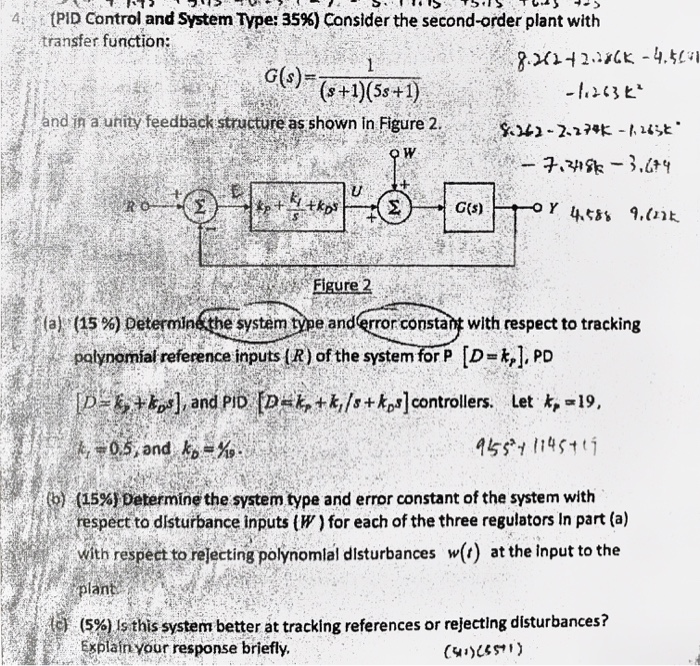 4. (PID Control and System Type: 35%) Consider the second-order plant with
transfer function:
G(s)=1/((s+1)(5s+1))
8.262+2.286k
-1.263k²
and in a unity feedback structure as shown in Figure 2.
8.262-2.274k-1.263k²
-7.348k-3.674
W
R + Σ E kP + kI/s + kDs U + Σ + G(s) Y
-
4.588 9.622k
Figure 2
(a) (15 %) Determine the system type and error constant with respect to tracking
polynomial reference inputs (R) of the system for P [D=kp], PD
[D=kp+kDs], and PID [D=kp+kI/s+kDs] controllers. Let kp=19,
kI=0.5, and kD=4/19.
95s²+114s+19
(b) (15%) Determine the system type and error constant of the system with
respect to disturbance inputs (W) for each of the three regulators in part (a)
with respect to rejecting polynomial disturbances w(t) at the input to the
plant.
(c) (5%) Is this system better at tracking references or rejecting disturbances?
Explain your response briefly.
(s+1)(5s+1)